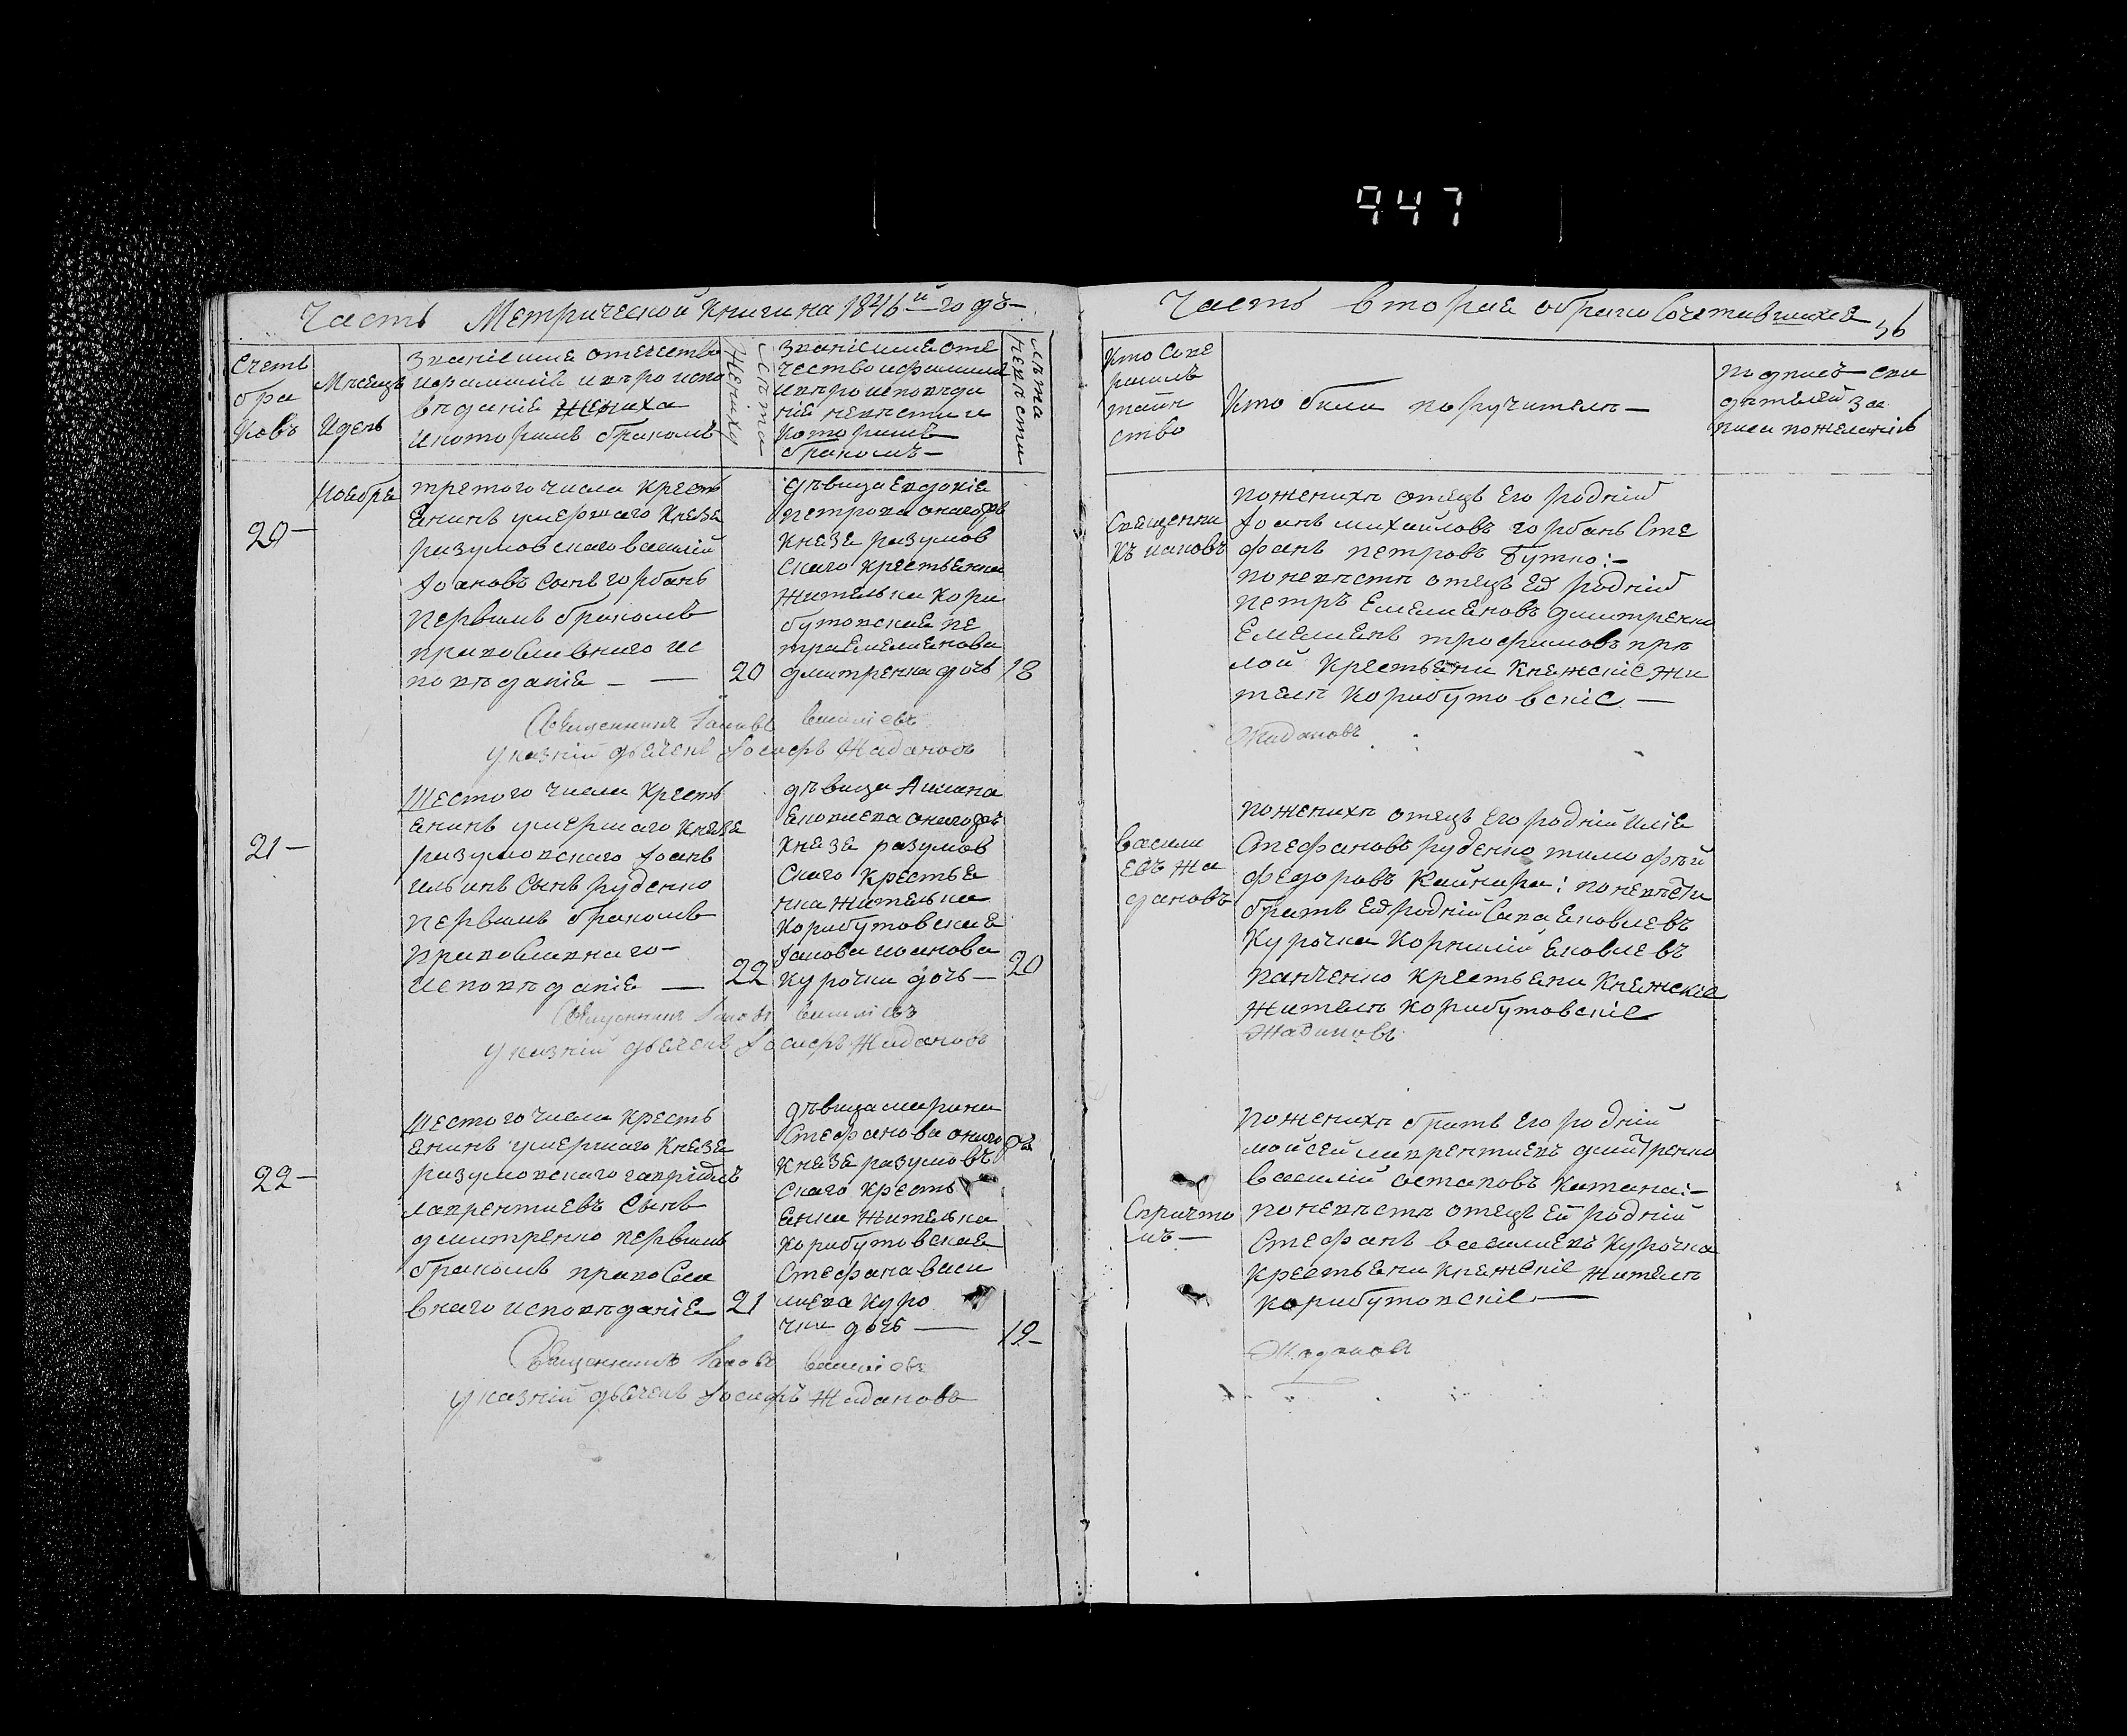 947
Часть Метрической Книги на 1846й годъ—
Часть вторая о бракосочетавшихся
56
Счетъ
бра
ковъ
Мѣсяцъ
И день
Званіе имя отечество
ифамилія ивѣроиспо
вѣданіе Жениха
икоторимъ бракомъ
Лѣта
Жениху
Званіе имя оте
чество ифамилия
ивѣроисповѣда
ніе невѣсти и
которимъ
бракомъ—
Лѣта
невѣсти
Кто Сове
ршилъ
таин
ство
Кто били поручители—
подписъ сви
дѣтелей за
писи пожеланію
20—
Ноебра
третого числа Кресть
янинъ умершаго Князя
разумовскаго василій
Іоановъ Сынъ горбань
первимъ бракомъ
православнаго ис
повѣданія — —
20
дѣвица Евдокія
петрова онагожъ
Князя разумов
скаго крестьянка
жителька Кори
бутовская пе
тра Емелиянова
дмитренка дочь
18
Священни
къ иаковъ
пожениху отецъ Его родній
Іоанъ михайловъ горбань Сте
фанъ петровъ бутко:—
поневѣстѣ отецъ Ея родній
петръ Емелияновъ дмитренко
Емелиянъ трофимовъ прѣ
лой Крестьяни Княжскіе жи
тели Корибутовскіе—
Священникъ Іаковъ василіевъ
указній дьячекъ Іосифъ Жадановъ
Жадановъ
21—
Шестого числа Кресть
янинъ умершаго Князя
разумовскаго Іоанъ
ильинъ Сынъ руденко
первимъ бракомъ
православнаго—
исповѣданія —
22
дѣвица Анна
Яковлева онагожъ
Князя разумов
скаго Крестья
нка жителька
Корибутовская
Іакова иоанова
Курочки дочь—
20
васили
евъ жа
дановъ
пожениху отецъ Его родній Илія
Стефановъ руденко тимофѣй
федоровъ Кайнара: поневѣсти
братъ Ея родній Сава Яковлевъ
Курочка Корнилій Яковлевъ
панченко крестьяни Княжскіе
жители Корибутовскіе
Священникъ Іаковъ василіевъ
указній дьячекъ Іосифъ Жадановъ
Жадановъ
22—
Шестого числа Кресть
янинъ умершаго Князя
разумовскаго гавріилъ
лаврентиевъ Сынъ
дмитренко первимъ
бракомъ правосла
внаго исповѣданія
21
дѣвица марина
Стефанова онаго
жъ
Князя разумовъ
скаго Кресть
янка жителька
корибутовская
Стефана васи
лиева Куро
чки дочь —
19—
Спричто
мъ—
пожениху братъ Его родній
мойсей лаврентиевъ дмитренко
василій остаповъ Катана:—
поневѣстѣ отецъ Ей родній
Стефанъ василиевъ Курочка
крестьяни княжскіе жители
корибутовскіе—
Священникъ Іаковъ василіевъ
указній дьячекъ Іосифъ Жадановъ
Жадановъ